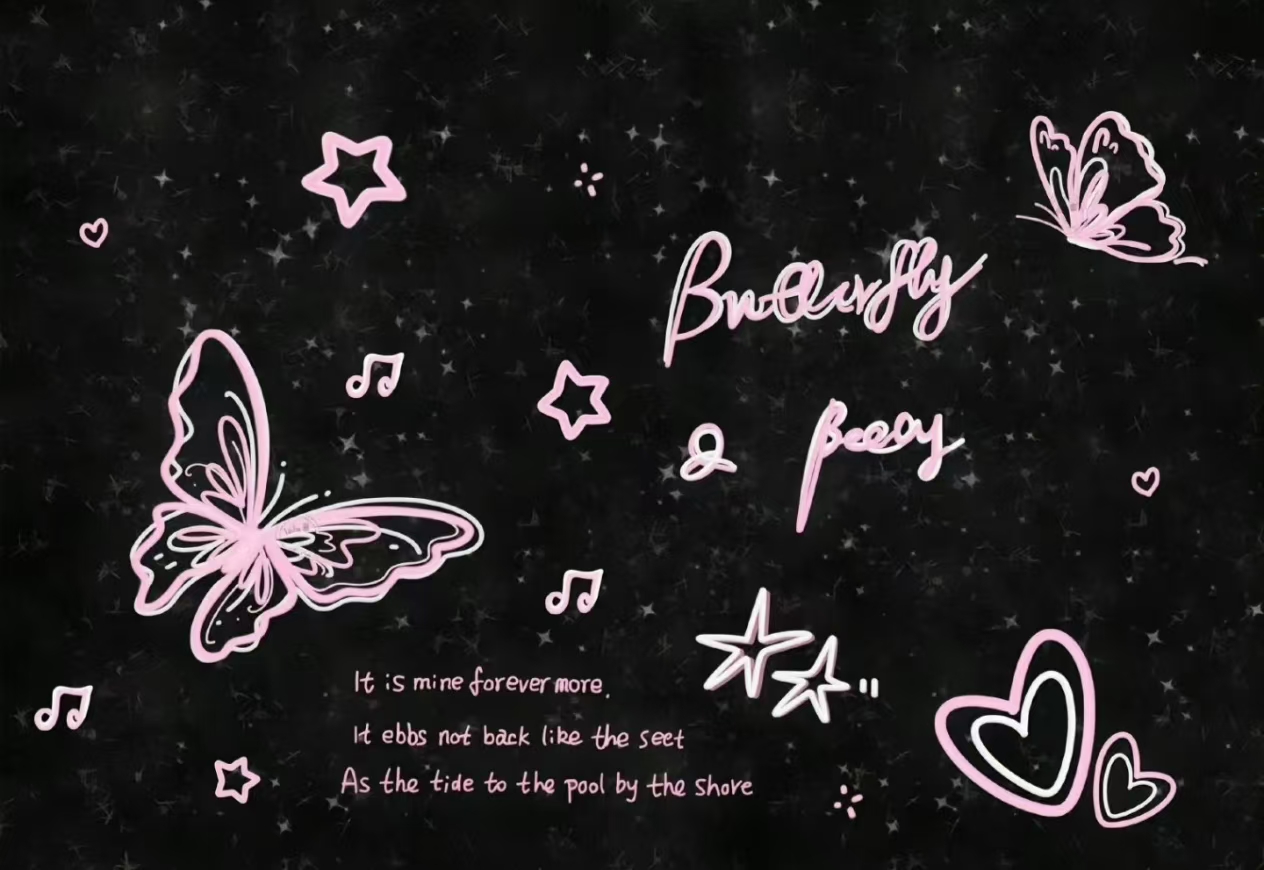 Butterfly
It is mine forever more.
It ebbs not back like the seet
As the tide to the pool by the shore